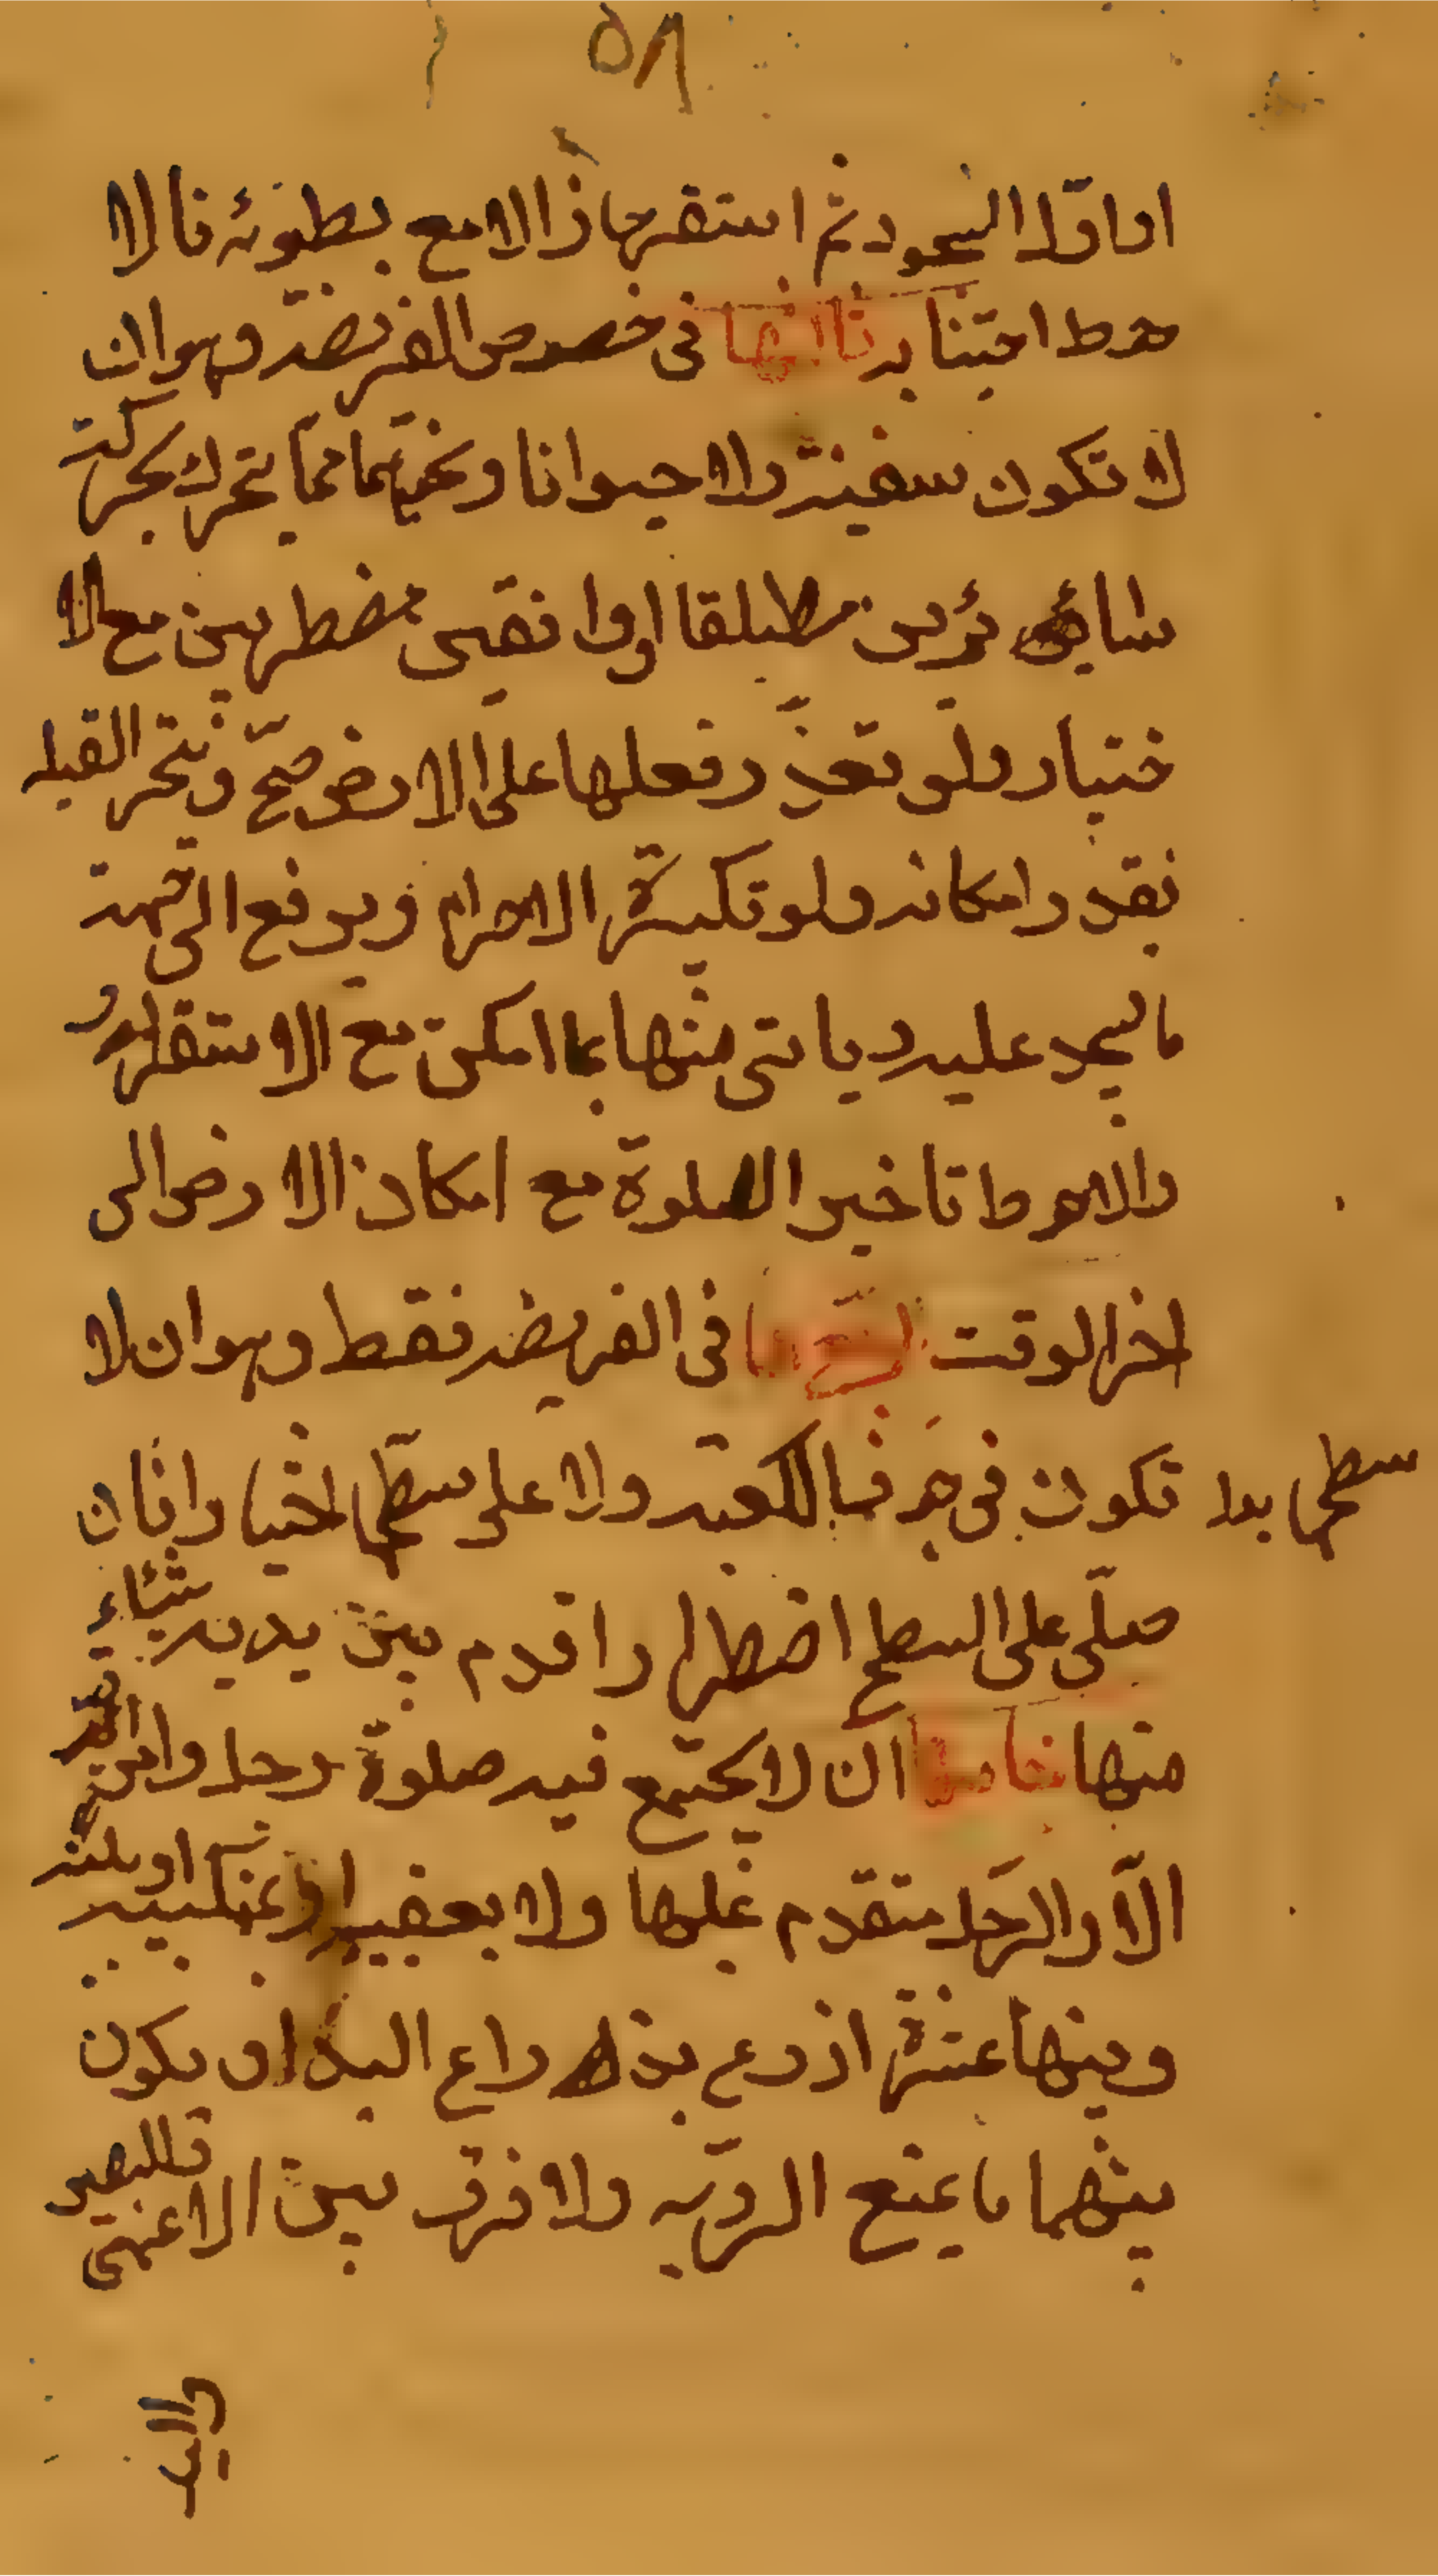 ٥٨
اداولا السجود ثم استقر جاز الا مع بطوئه فالا
حوط اجتنابه ثالثها فى خصوص الفريضه وهو ان
لا تكون سفينة ولا حيوانا ونحيهما مما يتحرك بحركته
سائر مطلقا اوواقفين مضطربين مع الا
ختيار ولو تعذر فعلها على الارض صح ويتحر القبله
بقدر امكانه ولو تكبيرة الاحرام ويرفع الى جبهته
ما يسجد عليه وياتى منها بما امكن مع الاستقرار
والاحوط تاخير الصلوة مع امكان الارض الى
اخر الوقت رابعها فى الفريضه فقط وهو ان لا
تكون فى جوف الكعبه ولا على سطحها اختيارا فان
سطحها بدا
صلّى على السطح اضطرارا قدم بين يديه شيئاء
منها خامسها ان لا يجتمع فيه صلوة رجل وامرئة
الاّ والرجل متقدم عليها ولا بعقبيه او بمنكبيه
وبينها عشرة اذرع بذراع اليد او يكون
بينهما ما يمنع الرويه ولا فرق بين الاعمى